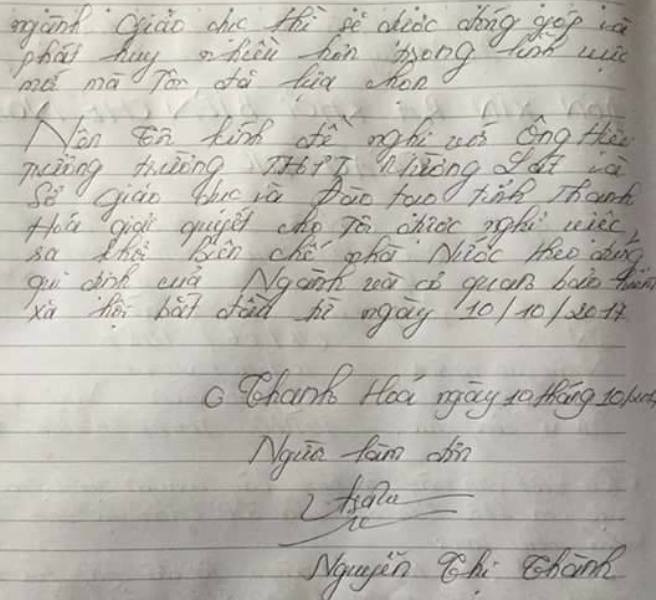 ngành Giáo dục thì sẽ được đóng góp và
phát huy nhiều hơn trong lĩnh vực
mới mà Tôi đã lựa chọn
Nên Tôi kính đề nghị với Ông Hiệu
trưởng trường THPT Mường Lát và
Sở Giáo dục và Đào tạo tỉnh Thanh
Hoá giải quyết cho Tôi được nghỉ việc,
ra khỏi Biên chế nhà Nước theo đúng
qui định của Ngành và cơ quan bảo hiểm
xã hội bắt đầu từ ngày 10/10/2017
Thanh Hoá ngày 10 tháng 10
Người làm đơn
Nguyễn Thị Thành